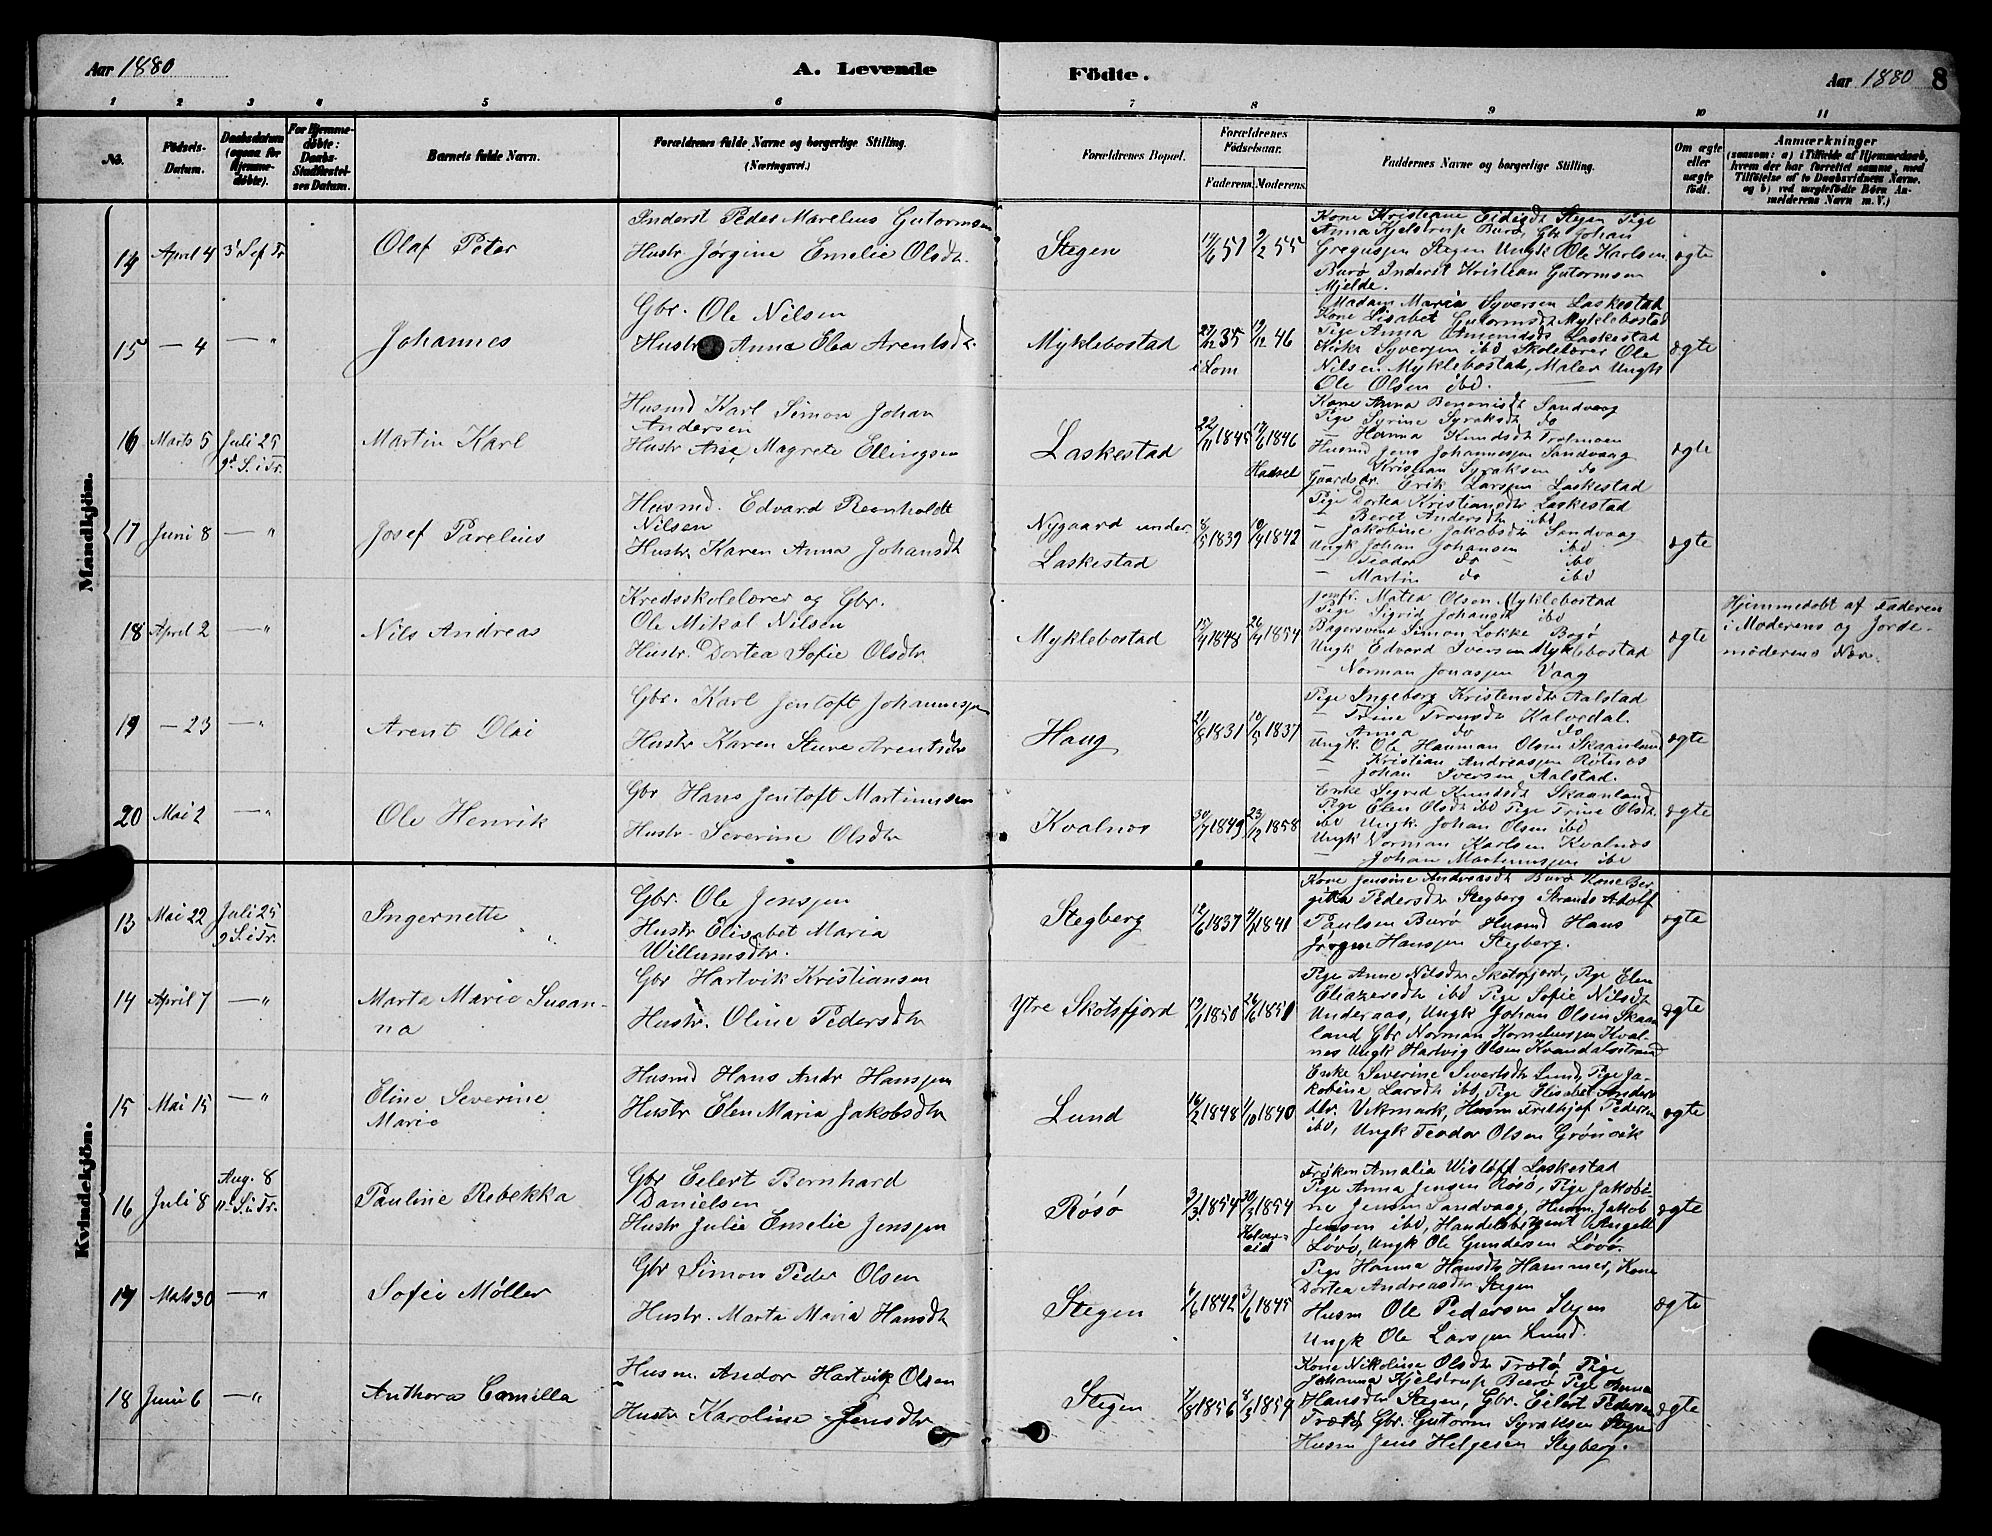 Aar 1880
A. Levende Födte.
Aar 1880 8
1 2 3 4 5 6 7 8 9 10 11
No. Födsels-Datum. Daabsdatum (ogsaa for Hjemme-döbte). For Hjemme-döbte: Daabs-Stadfæstel-ses Datum. Barnets fulde Navn. Forældrenes fulde Navne og borgerlige Stilling. (Næringsvei.) Forældrenes Bopæl. Forældrenes Fødselsaar. Faderens. Moderens. Faddernes Navne og borgerlige Stilling. Om ægte eller uægte födt. Anmærkninger (saasom: a) i Tilfælde af Hjemmedaab, hvem der har forrettet samme, med Tilföielse af to Daabsvidners Navne, og b) ved uægtefödte Börn An-melderens Navn m. V.)
Mandkjön.
14 April 4 3' S. ef. Tr Olaf Peter
Inderst Peder Marelius Gutormsen
Hustr Jørgine Emelie Olsdtr.
Stegen 14/6 51 9/2 55
Kone Kristiane Eidisdtr Stegen Pige
Anna Kjelstrup Burø Gbr Johan
Gregusjen Stegen Ungk Ole Karlsen
Burø Inderst Kristian Gutormsen
Mjelde.
ægte
15 — 4 — " Johannes
Gbr. Ole Nilsen
Hustr Anna Elea Arentsdtr.
Myklebostad 27/12 35 i Lom 19/12 46
Madam Maria Syversen Laskestad
Kone Lisabet Gutormsdtr Myklebostad
Pige Anna Amundsdtr Laskestad
Syversen ibd Skolelærer Ole
Nilsen Myklebostad, Maler Ungk
Ole Olsen ibd.
ægte
16 Marts 5 Juli 25 9d S. i Tr. Martin Karl
Husmd Karl Simon Johan
Andersen
Hustr Ane Magrete Ellingsen
Laskestad 22/11 1845 17/6 1846 Hadsel
Kone Anna Benonisdtr Sandvaag
Pige Syrine Syraksdtr do
— Hanna Knudsdtr Trolmoen
Husmd Jens Johannesjen Sandvaag
— Kristian Syraksen do
Gaardsdr. Erik Larsjen Laskestad
ægte
17 Juni 8 — " Josef Parelius
Husmd. Edvard Reinholdt
Nilsen
Hustr Karen Anna Johansdtr
Nygaard under Laskestad 8/5 1839 10/4 1842
Pige Dortea Kristiansdtr Laskestad
— Beret Andersdtr ibd
— Jakobine Jakobsdtr Sandvaag
Ungk Johan Johansen ibd
— Teodor do — ibd
— Martin do ibd
ægte
18 April 2 — " Nils Andreas
Kredsskolelærer og Gbr.
Ole Mikal Nilsen
Hustr. Dortea Sofie Olsdtr
Myklebostad 15/4 1848 26/4 1854
Jomfr. Matea Olsen Myklebostad
Pige Sigrid Johansdtr ibd
Bagersvend Simon Løkke Bogø
Ungk Edvard Iversen Myklebostad
— Norman Jonasjen Vaag
ægte
Hjemmedøbt af Faderen
i Moderens og Jorde-
moderens Nær.
19 — 23 — " Arent Olai
Gbr. Karl Jentoft Johannesjen
Hustr Karen Sture Arentsdtr
Haug 21/8 1831 10/5 1837
Pige Ingeborg Kristensdtr Aalstad
— Trine Tronsdtr Kalvedal.
— Anna do do
Ungk. Ole Hauman Olsen Skaanland
— Kristian Andreasjen Røtnes
— Johan Iversen Aalstad.
ægte
20 Mai 2 — " Ole Henrik
Gbr Hans Jentoft Martinussen
Hustr Severine Olsdtr
Kvalnes 30/7 1849 23/12 1858
Enke Sigrid Knudsdtr Skaanland
Pige Elen Olsdtr ibd Pige Trine Olsdtr
ibd Ungk. Johan Olsen ibd
Ungk Norman Karlsen Kvalnes
— Johan Martinussen ibd
ægte
Kvindekjön.
13 Mai 22 Juli 25 9 S. i Tr. Ingernette
Gbr. Ole Jensjen
Hustr Elisabet Maria
Willumsdtr.
Stegberg 12/6 1837 4/11 1841
Kone Jensine Andreasdtr Burø Kone Ber-
githa Pedersdtr Stegberg Strands Adolf
Paulsen Burø Husmd Hans
Jörgen Hansjen Stegberg.
ægte
14 April 7 — " Marta Marie Susan-
na
Gbr Hartvik Kristiansen
Hustr. Oline Pedersdtr
Ytre Skotsfjord 19/1 1850 26/6 1851
Pige Anne Nilsdtr Skotsfjord, Pige Elen
Eliazersdtr ibd Pige Sofie Nilsdtr
Underaas, Ungk Johan Olsen Skaan
land Gbr Norman Korneliussjen Kval-
nes Ungk Hartvig Olsen Kvandalsstrand
ægte
15 Mai 15 — " Eline Severine
Marie
Husmd Hans Andr Hansjen
Hustr Elen Maria Jakobsdtr
Lund 16/2 1848 1/10 1840
Enke Severine Sivertsdtr Lund, Pige Ja-
kobine Larsdtr ibd, Pige Elisabet Anders
dtr. Vikmark, Husm Fridhjof Pedersen
ibd, Ungk Teodor Olsen Grønvik
ægte
16 Juli 8 Aug. 8 11 S. i Tr. Pauline Rebekka
Gbr Eilert Bernhard
Danielsen
Hustr Julie Emelie Jensjen
Røsø 3/3 1854 30/3 1854
Frøken Amalia Wisløff Laskestad
Pige Anna Jensen Røsø, Pige Jakobi-
ne Jensen Sandvaag, Husm. Jakob
Jensen ibd, Handelsbetjent Angell
Løvø, Ungk Ole Gundersen Løvø.
ægte
17 Mai 30 — " Sofie Møller
Gbr Simon Peder Olsen
Hustr. Marta Maria Hansdtr
Stegen 4/6 1842 3/6 1845
Pige Hanna Hansdtr Hammer, Kone
Dortea Andreasdtr Stegen
Husm Ole Pedersen Stegen
Ungk Ole Larsjen Lund.
ægte
18 Juni 6 — " Anthora Camilla
Husm Andor Hartvik Olsen
Hustr Karoline Jensdtr
Stegen 7/8 1856 8/3 1859
Kone Nikoline Olsdtr Trætø Pige
Johanna Kjelstrup Burø Pige Anna
Hansdtr Stegen, Gbr. Eilert Pedersen
Trætø, Gbr. Gutorm Syraksen Stegen
Husm Jens Helgesen Stegberg.
ægte